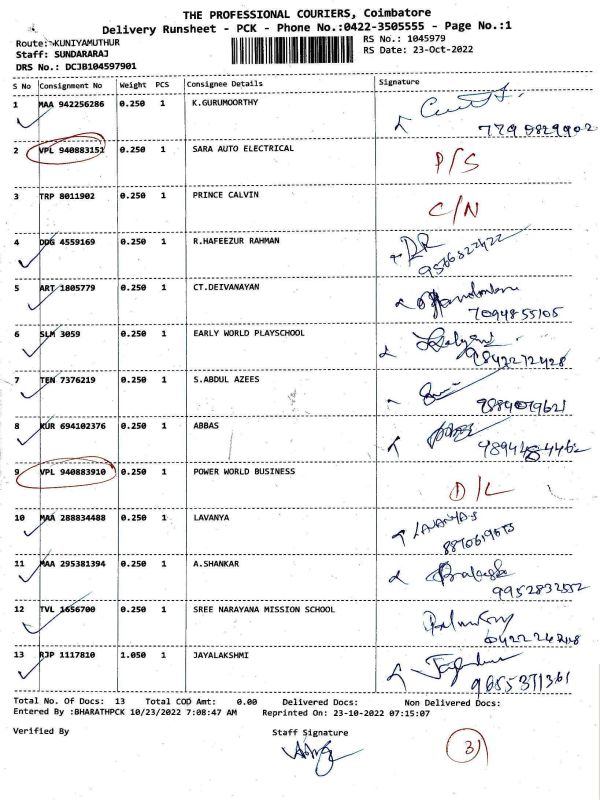 THE PROFESSIONAL COURIERS, Coimbatore
Delivery Runsheet - PCK - Phone No.:0422-3505555 - Page No.:1
Route: KUNIYAMUTHUR RS No.: 1045979
Staff: SUNDARARAJ RS Date: 23-Oct-2022
DRS No.: DCJB104597901
S No Consignment No Weight PCS Consignee Details Signature
1 MAA 942256286 0.250 1 K.GURUMOORTHY
2 VPL 940883151 0.250 1 SARA AUTO ELECTRICAL P/S
3 TRP 8011902 0.250 1 PRINCE CALVIN C/N
4 DDG 4559169 0.250 1 R.HAFEEZUR RAHMAN
9566822422
5 ART 1805779 0.250 1 CT.DEIVANAYAN
7094855105
6 SLM 3059 0.250 1 EARLY WORLD PLAYSCHOOL
9842272428
7 TEN 7376219 0.250 1 S.ABDUL AZEES
9884079621
8 KUR 694102376 0.250 1 ABBAS
9894484462
9 VPL 940883910 0.250 1 POWER WORLD BUSINESS D/L
10 MAA 288834488 0.250 1 LAVANYA
11 MAA 295381394 0.250 1 A.SHANKAR
9952832552
12 TVL 1656700 0.250 1 SREE NARAYANA MISSION SCHOOL
13 RJP 1117810 1.050 1 JAYALAKSHMI
9655371361
Total No. Of Docs: 13 Total COD Amt: 0.00 Delivered Docs: Non Delivered Docs:
Entered By :BHARATHPCK 10/23/2022 7:08:47 AM Reprinted On: 23-10-2022 07:15:07
Verified By Staff Signature